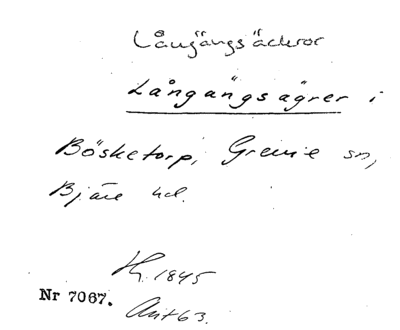 Långängsäckror
Långängsägrer i
Bösketorp, Grevie sn,
Bjäre hd.
H. 1845
Nr 7067.
Ant 63.